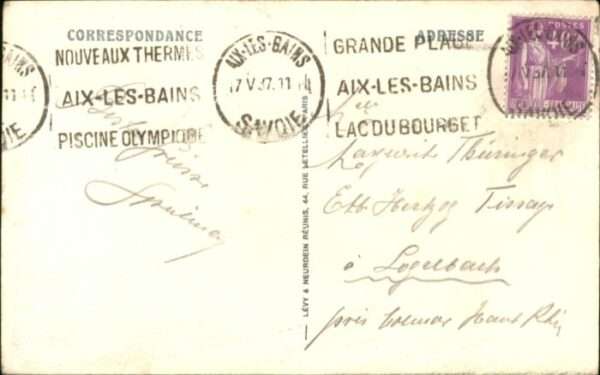 CORRESPONDANCE
ADRESSE
NOUVEAUX THERMES
AIX-LES-BAINS
PISCINE OLYMPIQUE
AIX-LES-BAINS
17 V 37. 11
SAVOIE
GRANDE PLAGE
AIX-LES-BAINS
LAC DU BOURGET
AIX-LES-BAINS
POSTES
Grüsse
LÉVY & NEURDEIN RÉUNIS, 44, RUE LETELLIER, PARIS
Mlle
Thüringer
Ets Herzog Tissage
à Logelbach
près Colmar Haut Rhin